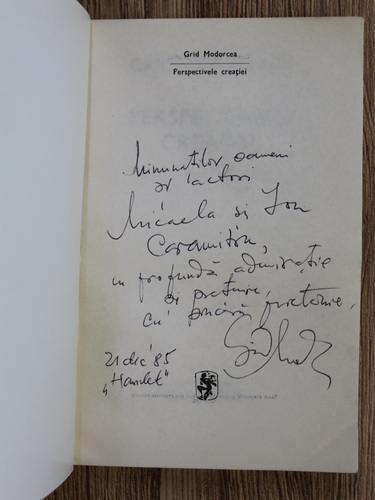 Grid Modorcea
Perspectivele creației
Minunaților oameni
și actori
Micaela și Ion
Caramitru,
cu profundă admirație
și prețuire,
cu sinceră prietenie,
21 dec '85
„Hamlet"